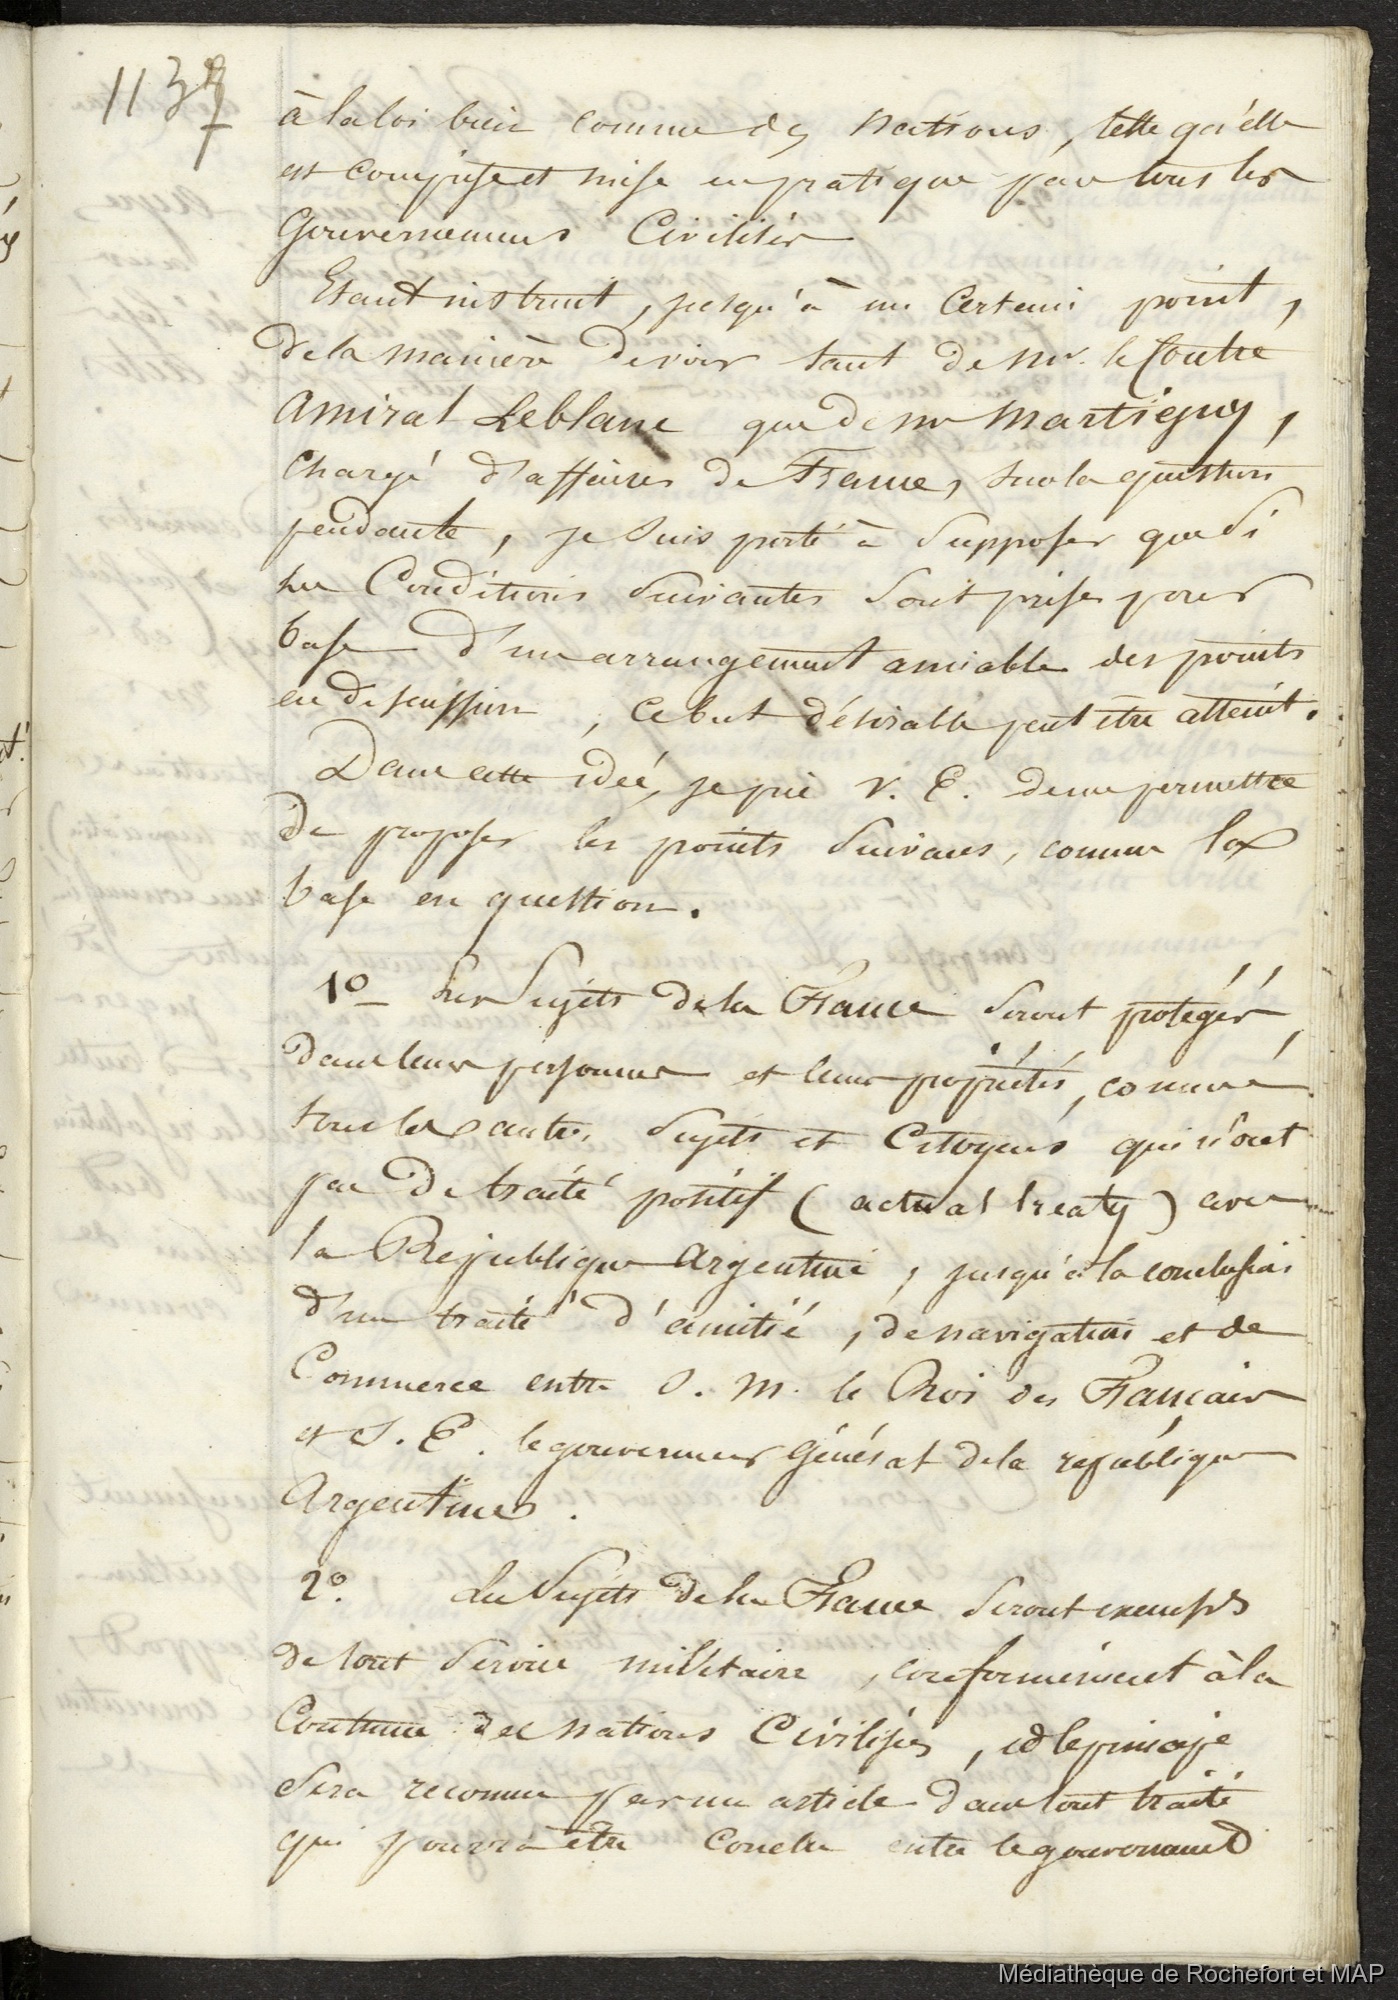 1137
à la loi bien comme des Nations, telle qu'elle
est comprise et mise en pratique par tous les
Gouvernemens Civilisés
Etant instruit, jusqu'à un Certain point,
de la manière de voir tant de Mr. le Contre
Amiral Leblanc que de Mr Martigny,
Chargé d'affaires de France, sur la question
pendante, je suis porté à supposer que si
les Conditions suivantes sont prises pour
base d'un arrangement amiable des points
en discussion, ce but désirable peut être atteint.
Dans cette idée, je prie V. E. de me permettre
de proposer les points suivans, comme la
base en question.
1o Les Sujets de la France seront protégés,
dans leurs personnes et leurs propriétés, comme
tous les autres sujets et Citoyens qui n'ont
pas de traité positif (actual treaty) avec
la République Argentine, jusqu'à la conclusion
d'un traité d'amitié, de navigation et de
Commerce entre S. M. le Roi des Français
et S. E. le gouverneur Général de la république
Argentine.
2o. Les Sujets de la France seront exempts
de tout service militaire, conformément à la
Coutume des nations Civilisées, et le principe
sera reconnu par un article dans tout traité
qui pourra être conclu entre le gouvernement
Médiathèque de Rochefort et MAP